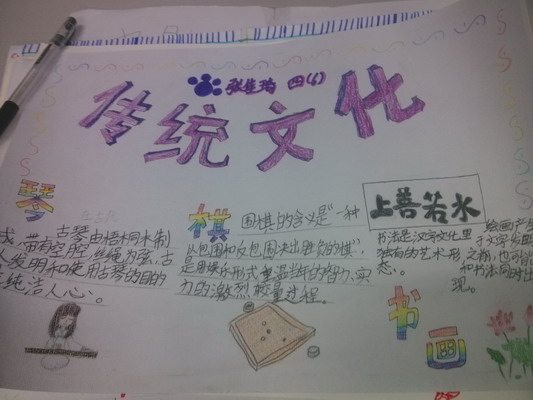 四
传统文化
琴
古琴由梧桐木制
带有空腔,丝绳为弦,古
人发明和使用古琴的目的
纯洁人心。
棋
围棋的含义是"一种
从包围和反包围决出胜负的棋",
是用娱乐形式重温当年的智力、实
力的激烈较量过程。
上善若水
书法是汉字文化里
独有的艺术形
态。
绘画产
于文字发明
之前,也可
和书法同时出
现。
书画